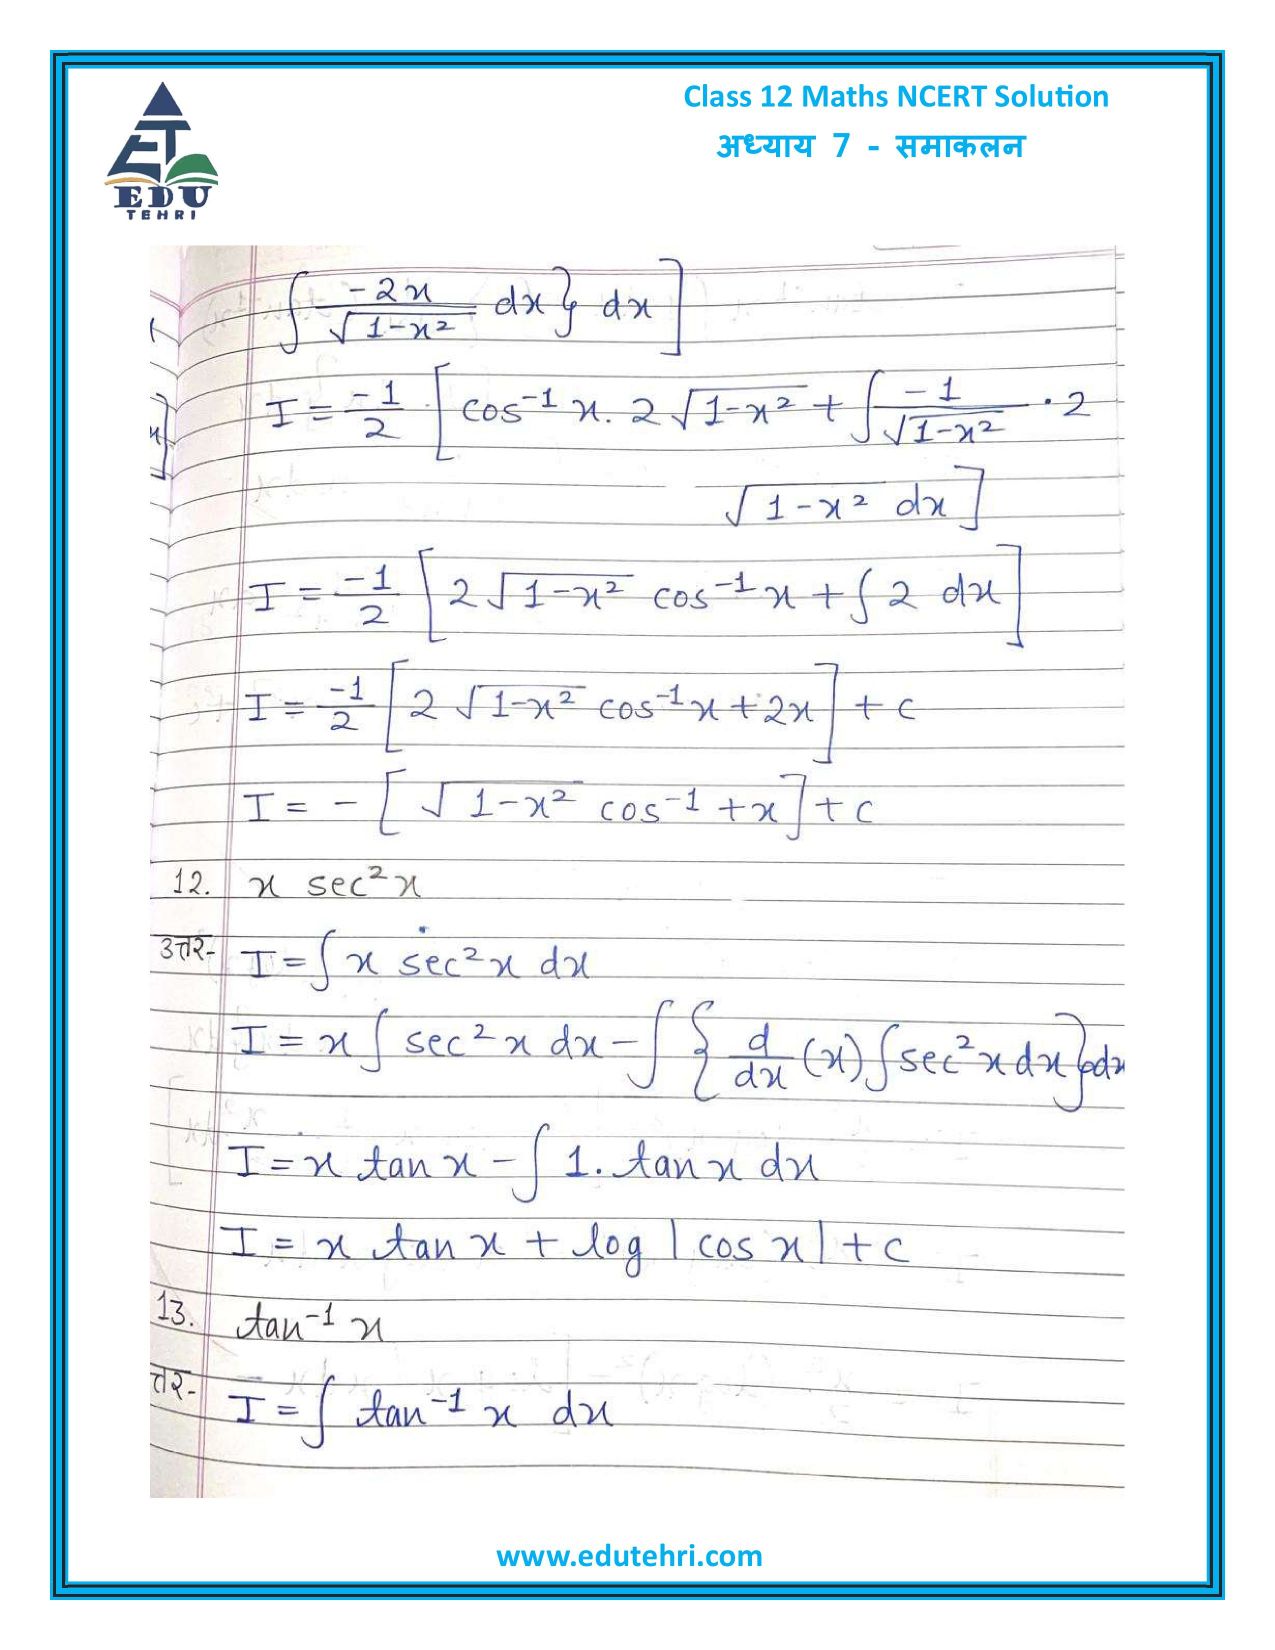 Class 12 Maths NCERT Solution
अध्याय 7 - समाकलन
EDU
TEHRI
∫ -2x/√(1-x²) dx} dx]
I = -1/2 [cos⁻¹ x. 2√(1-x²) + ∫ -1/√(1-x²) · 2
√(1-x²) dx]
I = -1/2 [2√(1-x²) cos⁻¹x + ∫ 2 dx]
I = -1/2 [2√(1-x²) cos⁻¹x + 2x] + c
I = - [√(1-x²) cos⁻¹ + x] + c
12. x sec²x
उत्तर- I = ∫ x sec²x dx
I = x ∫ sec²x dx - ∫ {d/dx (x) ∫ sec²x dx} dx
I = x tan x - ∫ 1. tan x dx
I = x tan x + log |cos x| + c
13. tan⁻¹ x
त्तर- I = ∫ tan⁻¹ x dx
www.edutehri.com